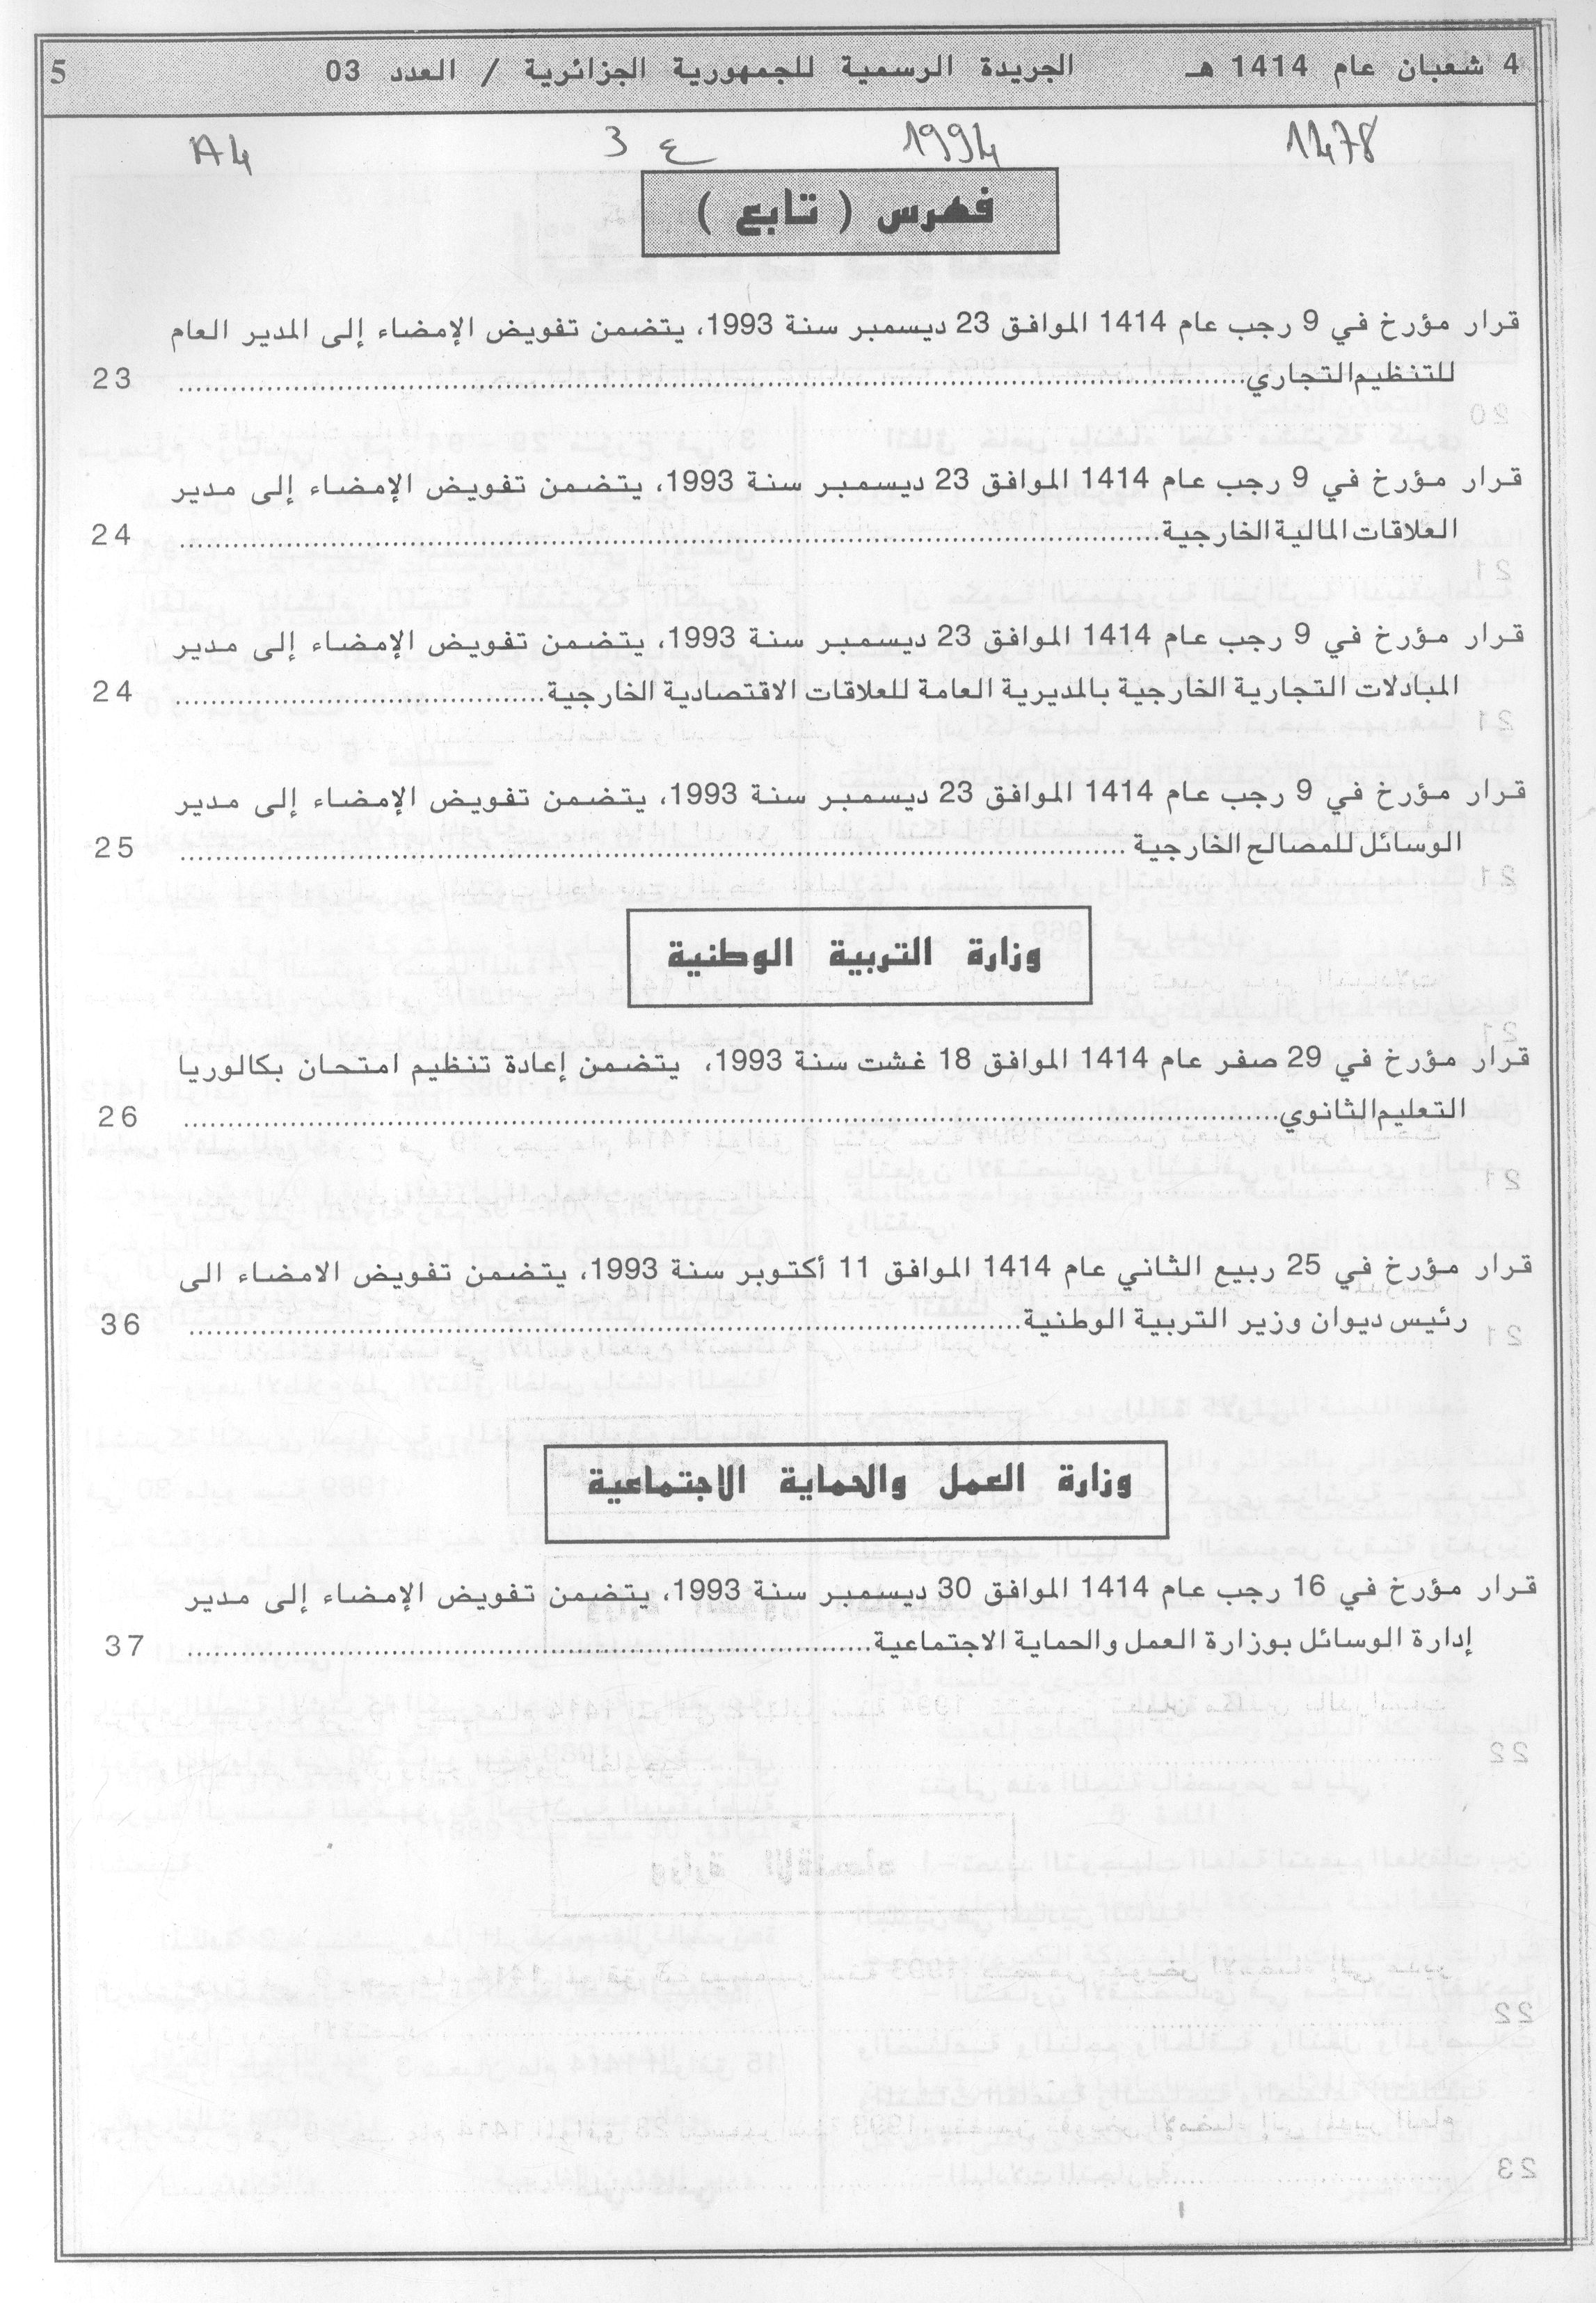 4 شعبان عام 1414 هـ الجريدة الرسمية للجمهورية الجزائرية / العدد 03 5
1478 1994 ع 3 A4
فهرس ( تابع )
قرار مؤرخ في 9 رجب عام 1414 الموافق 23 ديسمبر سنة 1993، يتضمن تفويض الإمضاء إلى المدير العام
للتنظيم التجاري........................................ 23
قرار مؤرخ في 9 رجب عام 1414 الموافق 23 ديسمبر سنة 1993، يتضمن تفويض الإمضاء إلى مدير
العلاقات المالية الخارجية........................................ 24
قرار مؤرخ في 9 رجب عام 1414 الموافق 23 ديسمبر سنة 1993، يتضمن تفويض الإمضاء إلى مدير
المبادلات التجارية الخارجية بالمديرية العامة للعلاقات الاقتصادية الخارجية........................................ 24
قرار مؤرخ في 9 رجب عام 1414 الموافق 23 ديسمبر سنة 1993، يتضمن تفويض الإمضاء إلى مدير
الوسائل للمصالح الخارجية ........................................ 25
وزارة التربية الوطنية
قرار مؤرخ في 29 صفر عام 1414 الموافق 18 غشت سنة 1993، يتضمن إعادة تنظيم امتحان بكالوريا
التعليم الثانوي........................................ 26
قرار مؤرخ في 25 ربيع الثاني عام 1414 الموافق 11 أكتوبر سنة 1993، يتضمن تفويض الامضاء الى
رئيس ديوان وزير التربية الوطنية........................................ 36
وزارة العمل والحماية الاجتماعية
قرار مؤرخ في 16 رجب عام 1414 الموافق 30 ديسمبر سنة 1993، يتضمن تفويض الإمضاء إلى مدير
إدارة الوسائل بوزارة العمل والحماية الاجتماعية........................................ 37